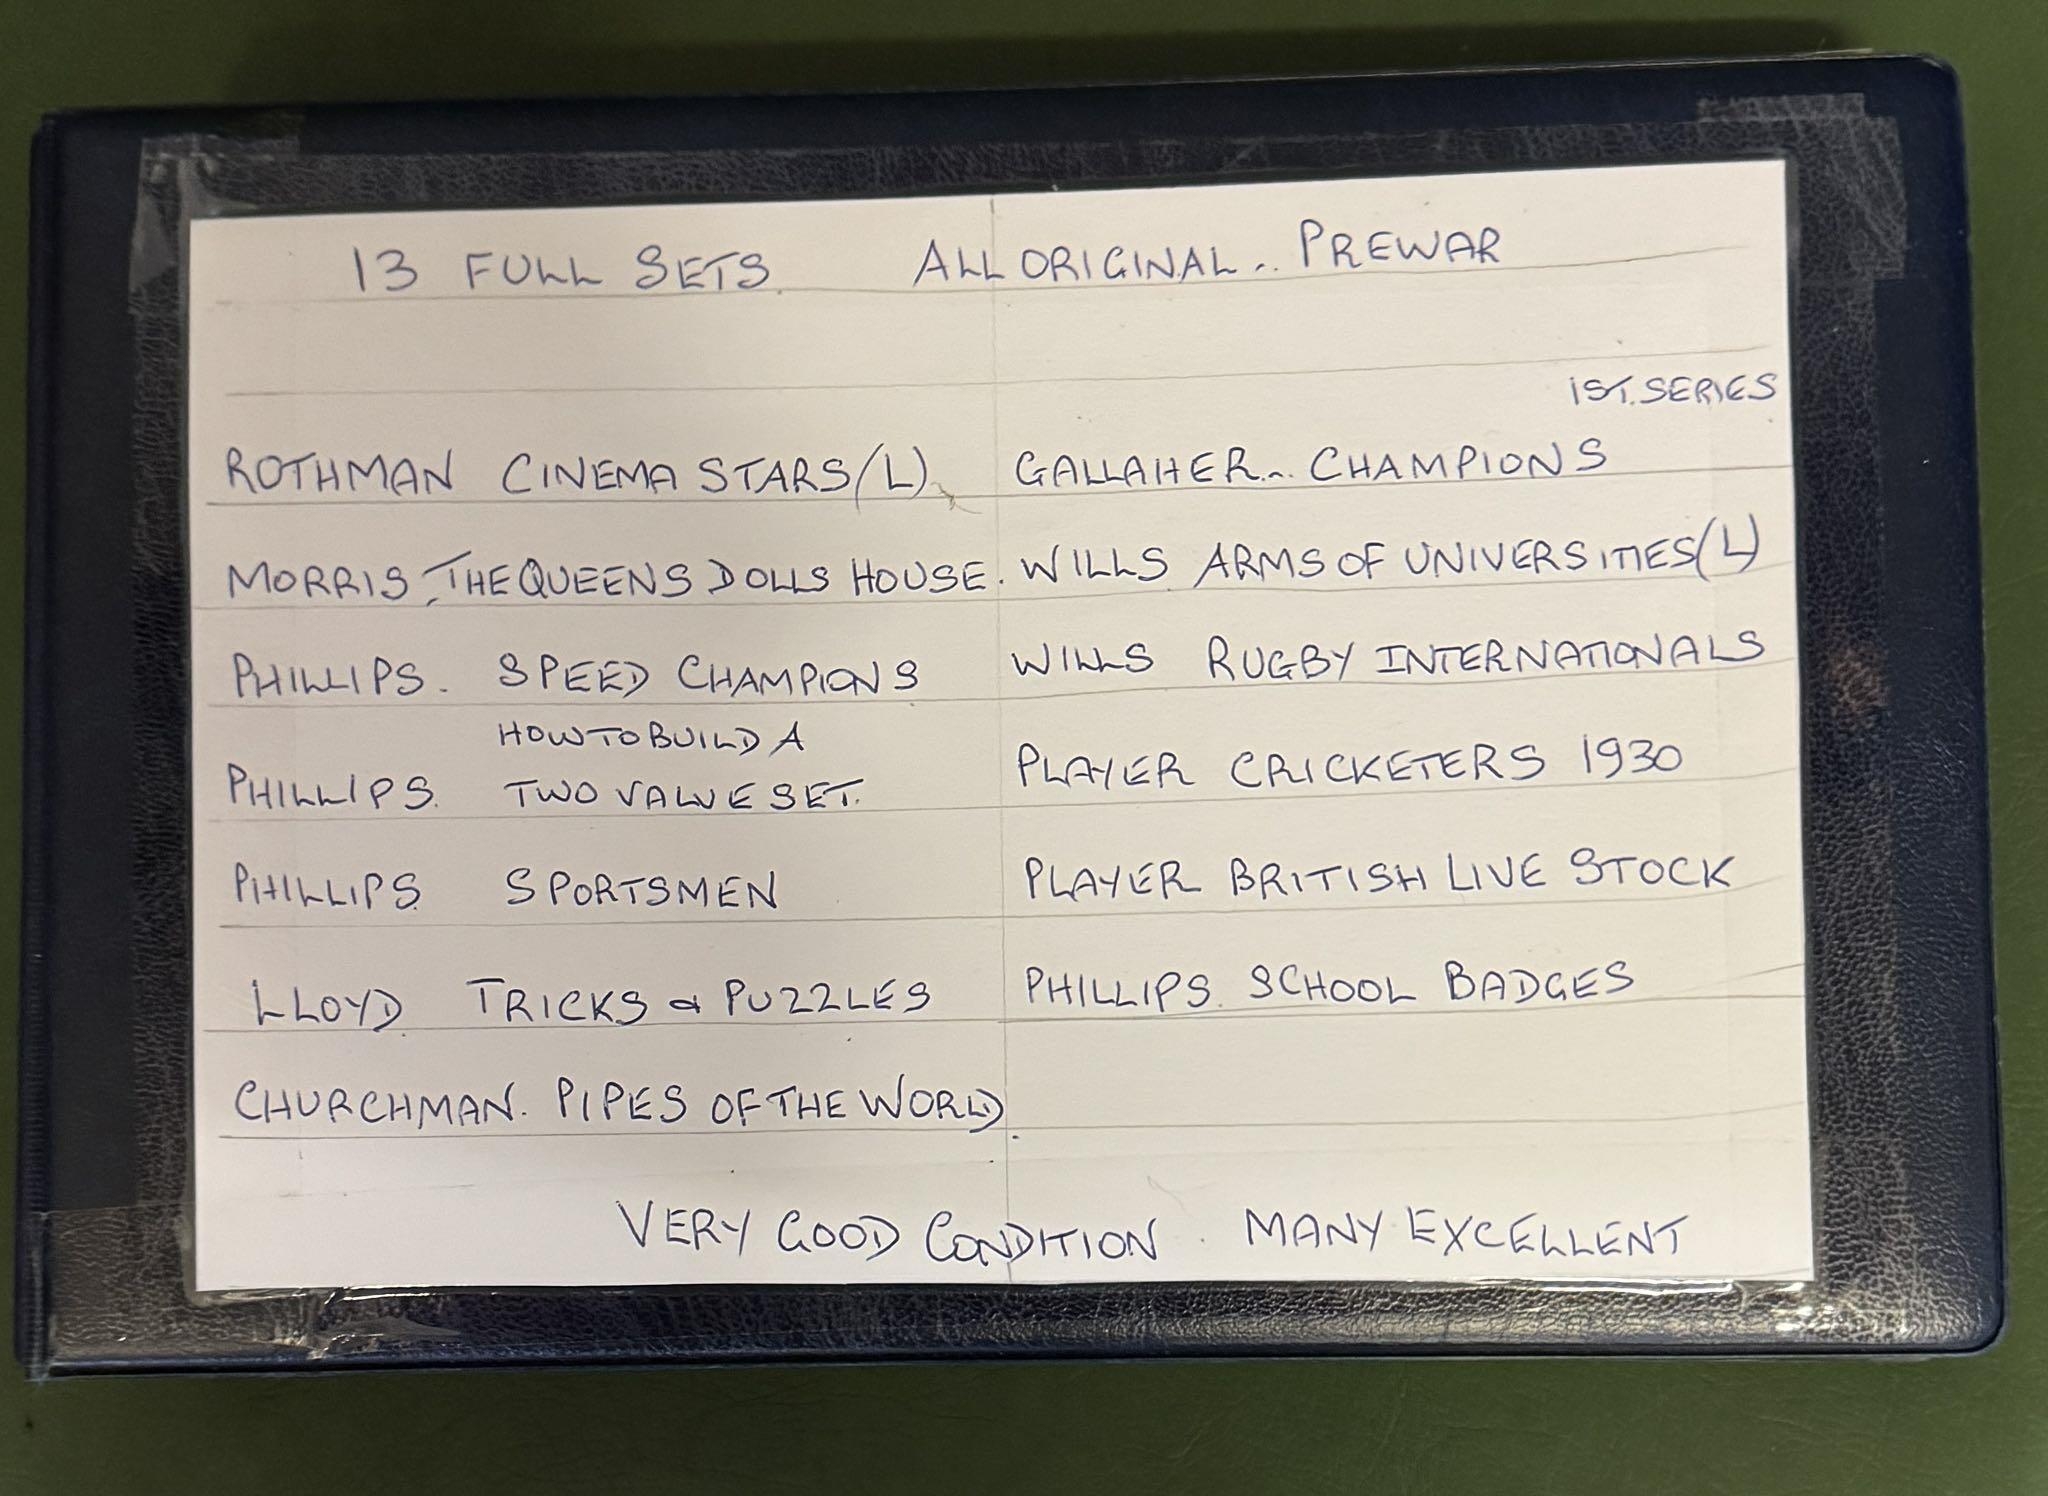 13 FULL SETS. ALL ORIGINAL.. PREWAR
1ST. SERIES
ROTHMAN CINEMA STARS (L) GALLAHER... CHAMPIONS
MORRIS. THE QUEENS DOLLS HOUSE. WILLS ARMS OF UNIVERSITIES (L)
PHILLIPS. SPEED CHAMPIONS WILLS RUGBY INTERNATIONALS
HOW TO BUILD A
PHILLIPS. TWO VALVE SET. PLAYER CRICKETERS 1930
PHILLIPS SPORTSMEN PLAYER BRITISH LIVE STOCK
LLOYD TRICKS & PUZZLES PHILLIPS. SCHOOL BADGES
CHURCHMAN. PIPES OF THE WORLD.
VERY GOOD CONDITION. MANY EXCELLENT